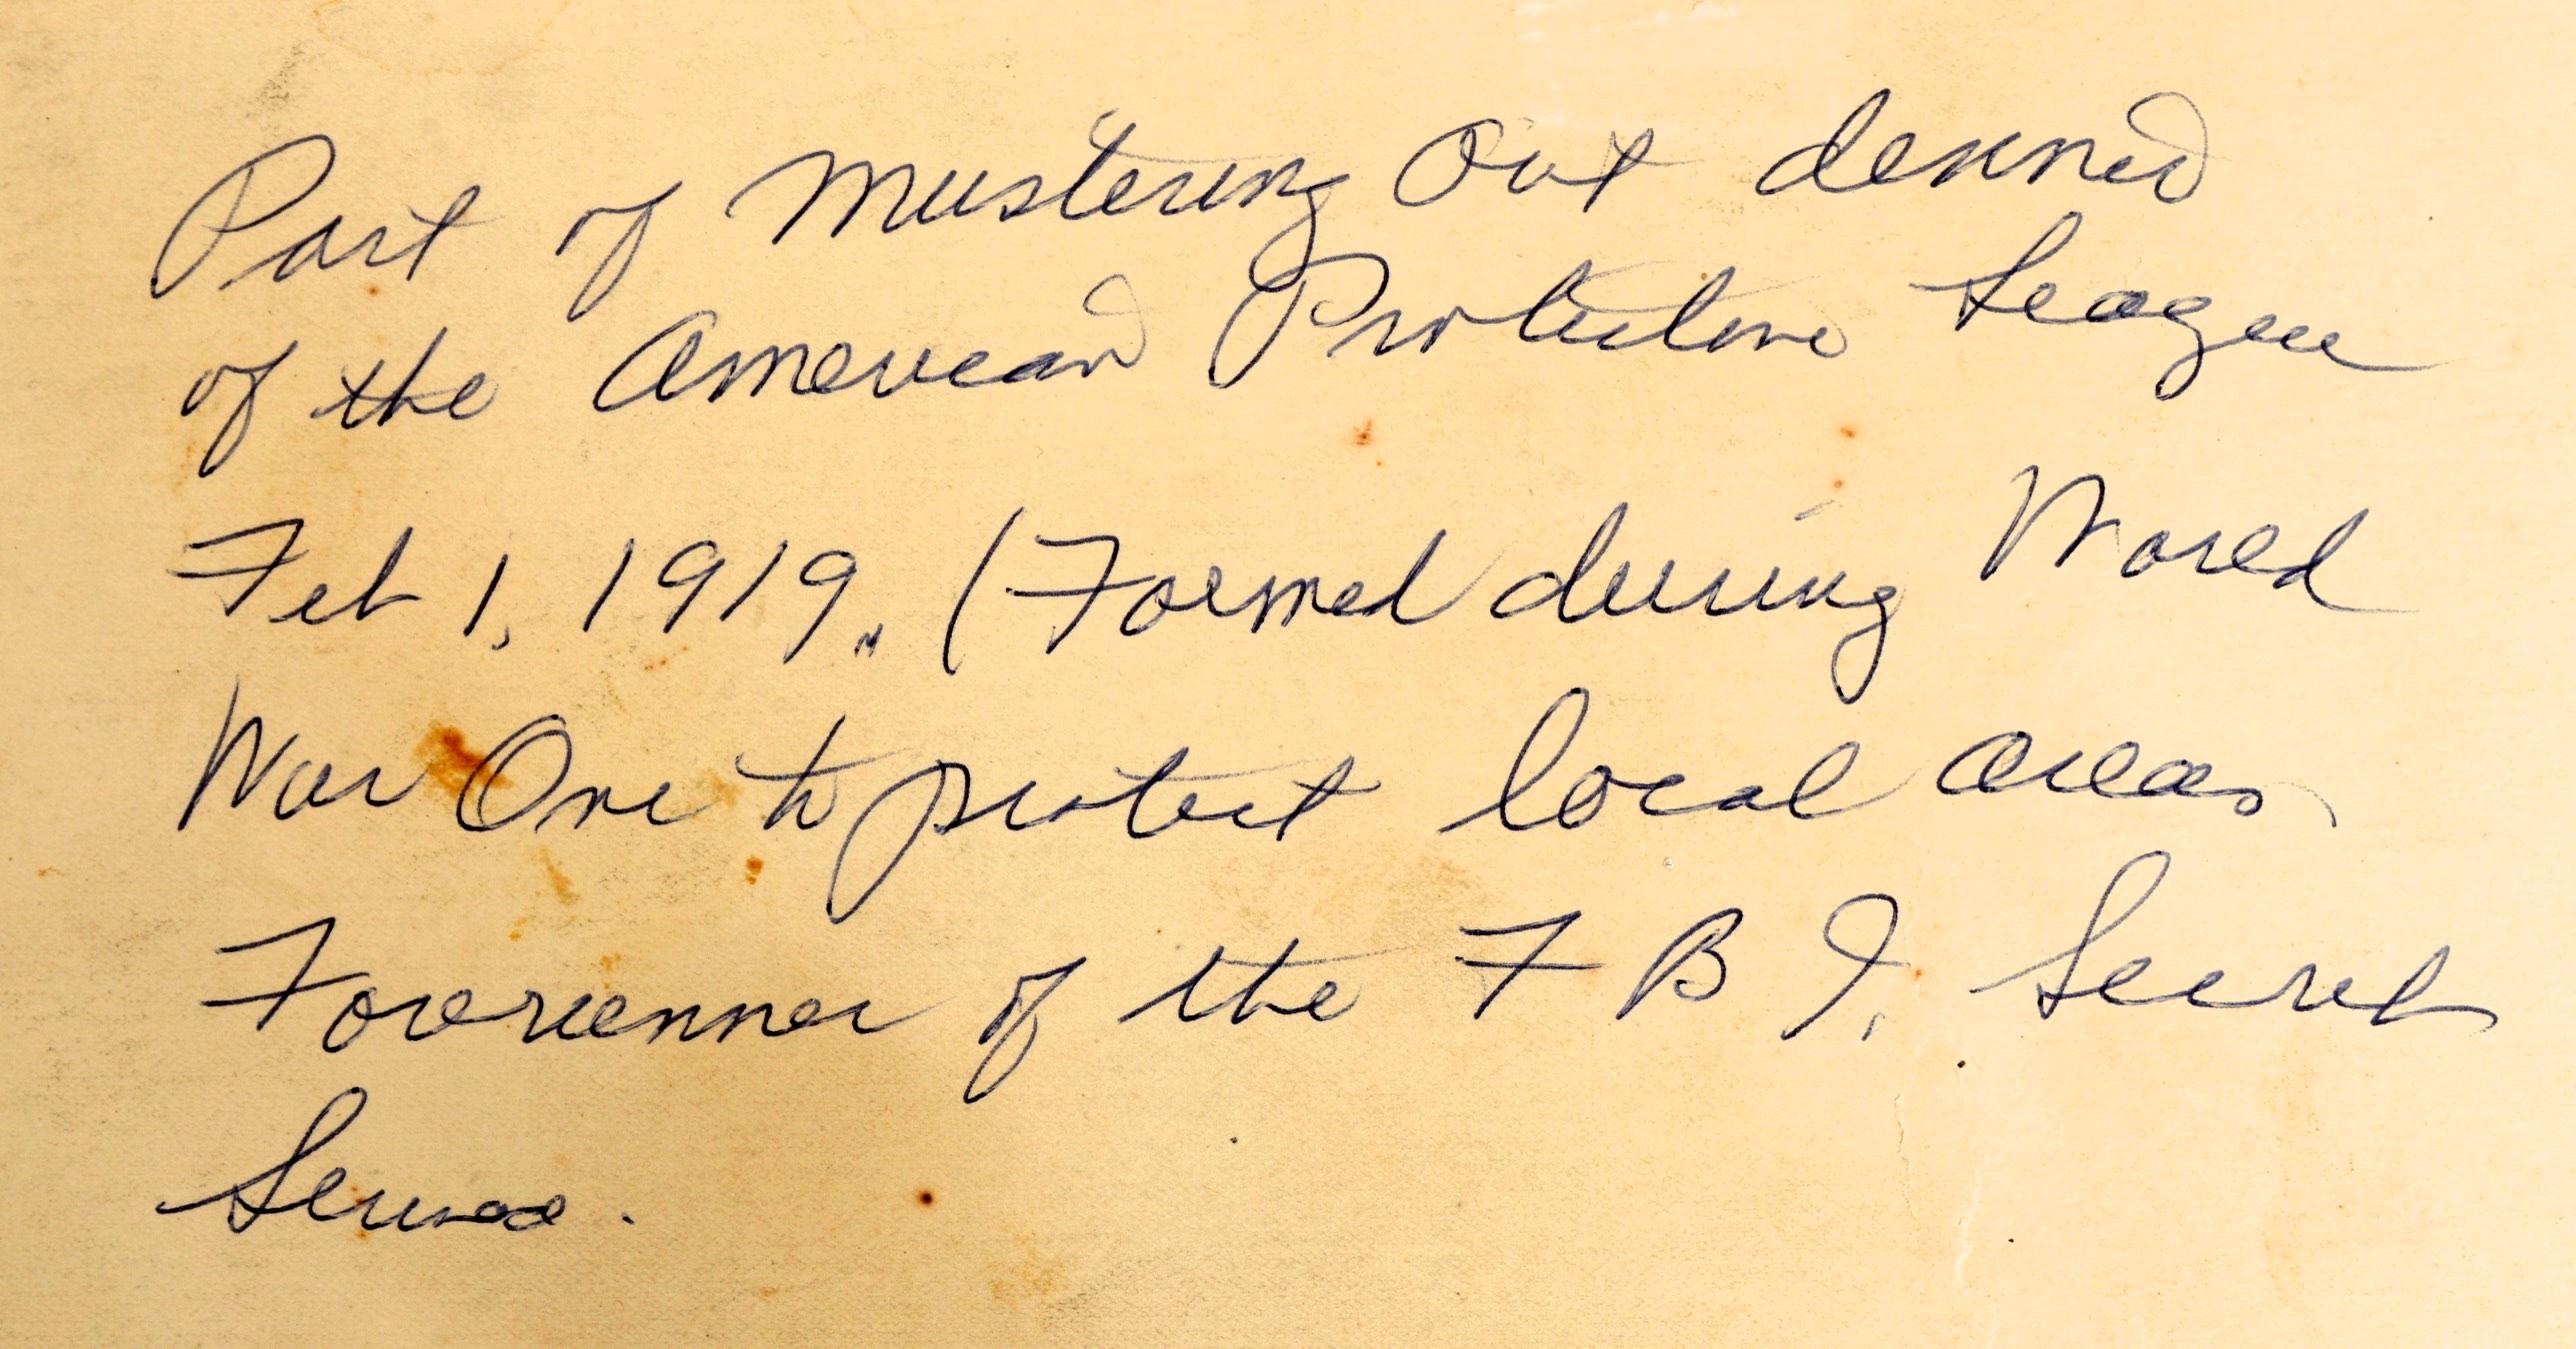 Part of Mustering Out dinner
of the American Protective League
Feb 1, 1919. (Formed during World
War One to protect local areas
Forerunner of the F B I, Secret
Service.